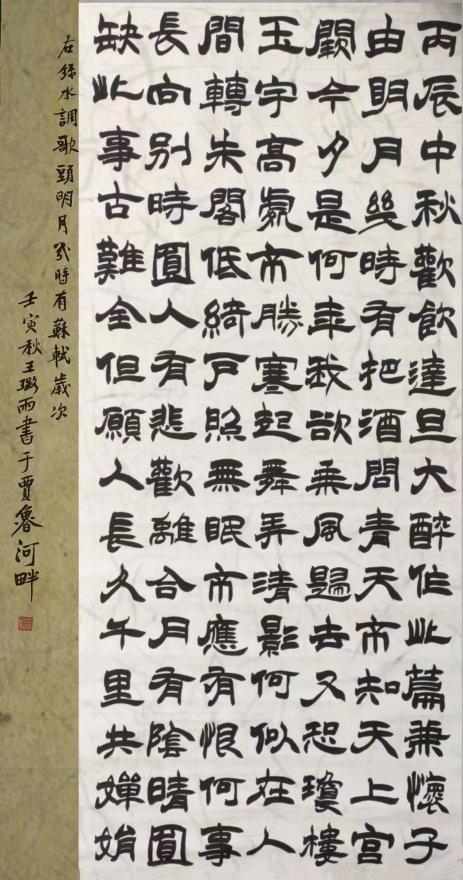 丙辰中秋歡飲達旦大醉作此篇兼懷子
由明月幾時有把酒問青天不知天上宮
闕今夕是何年我欲乘風歸去又恐瓊樓
玉宇高處不勝寒起舞弄清影何似在人
間轉朱閣低綺戶照無眠不應有恨何事
長向別時圓人有悲歡離合月有陰晴圓
缺此事古難全但願人長久千里共嬋娟
右錄水調歌頭明月幾時有蘇軾歲次
壬寅秋王璐雨書于賈魯河畔